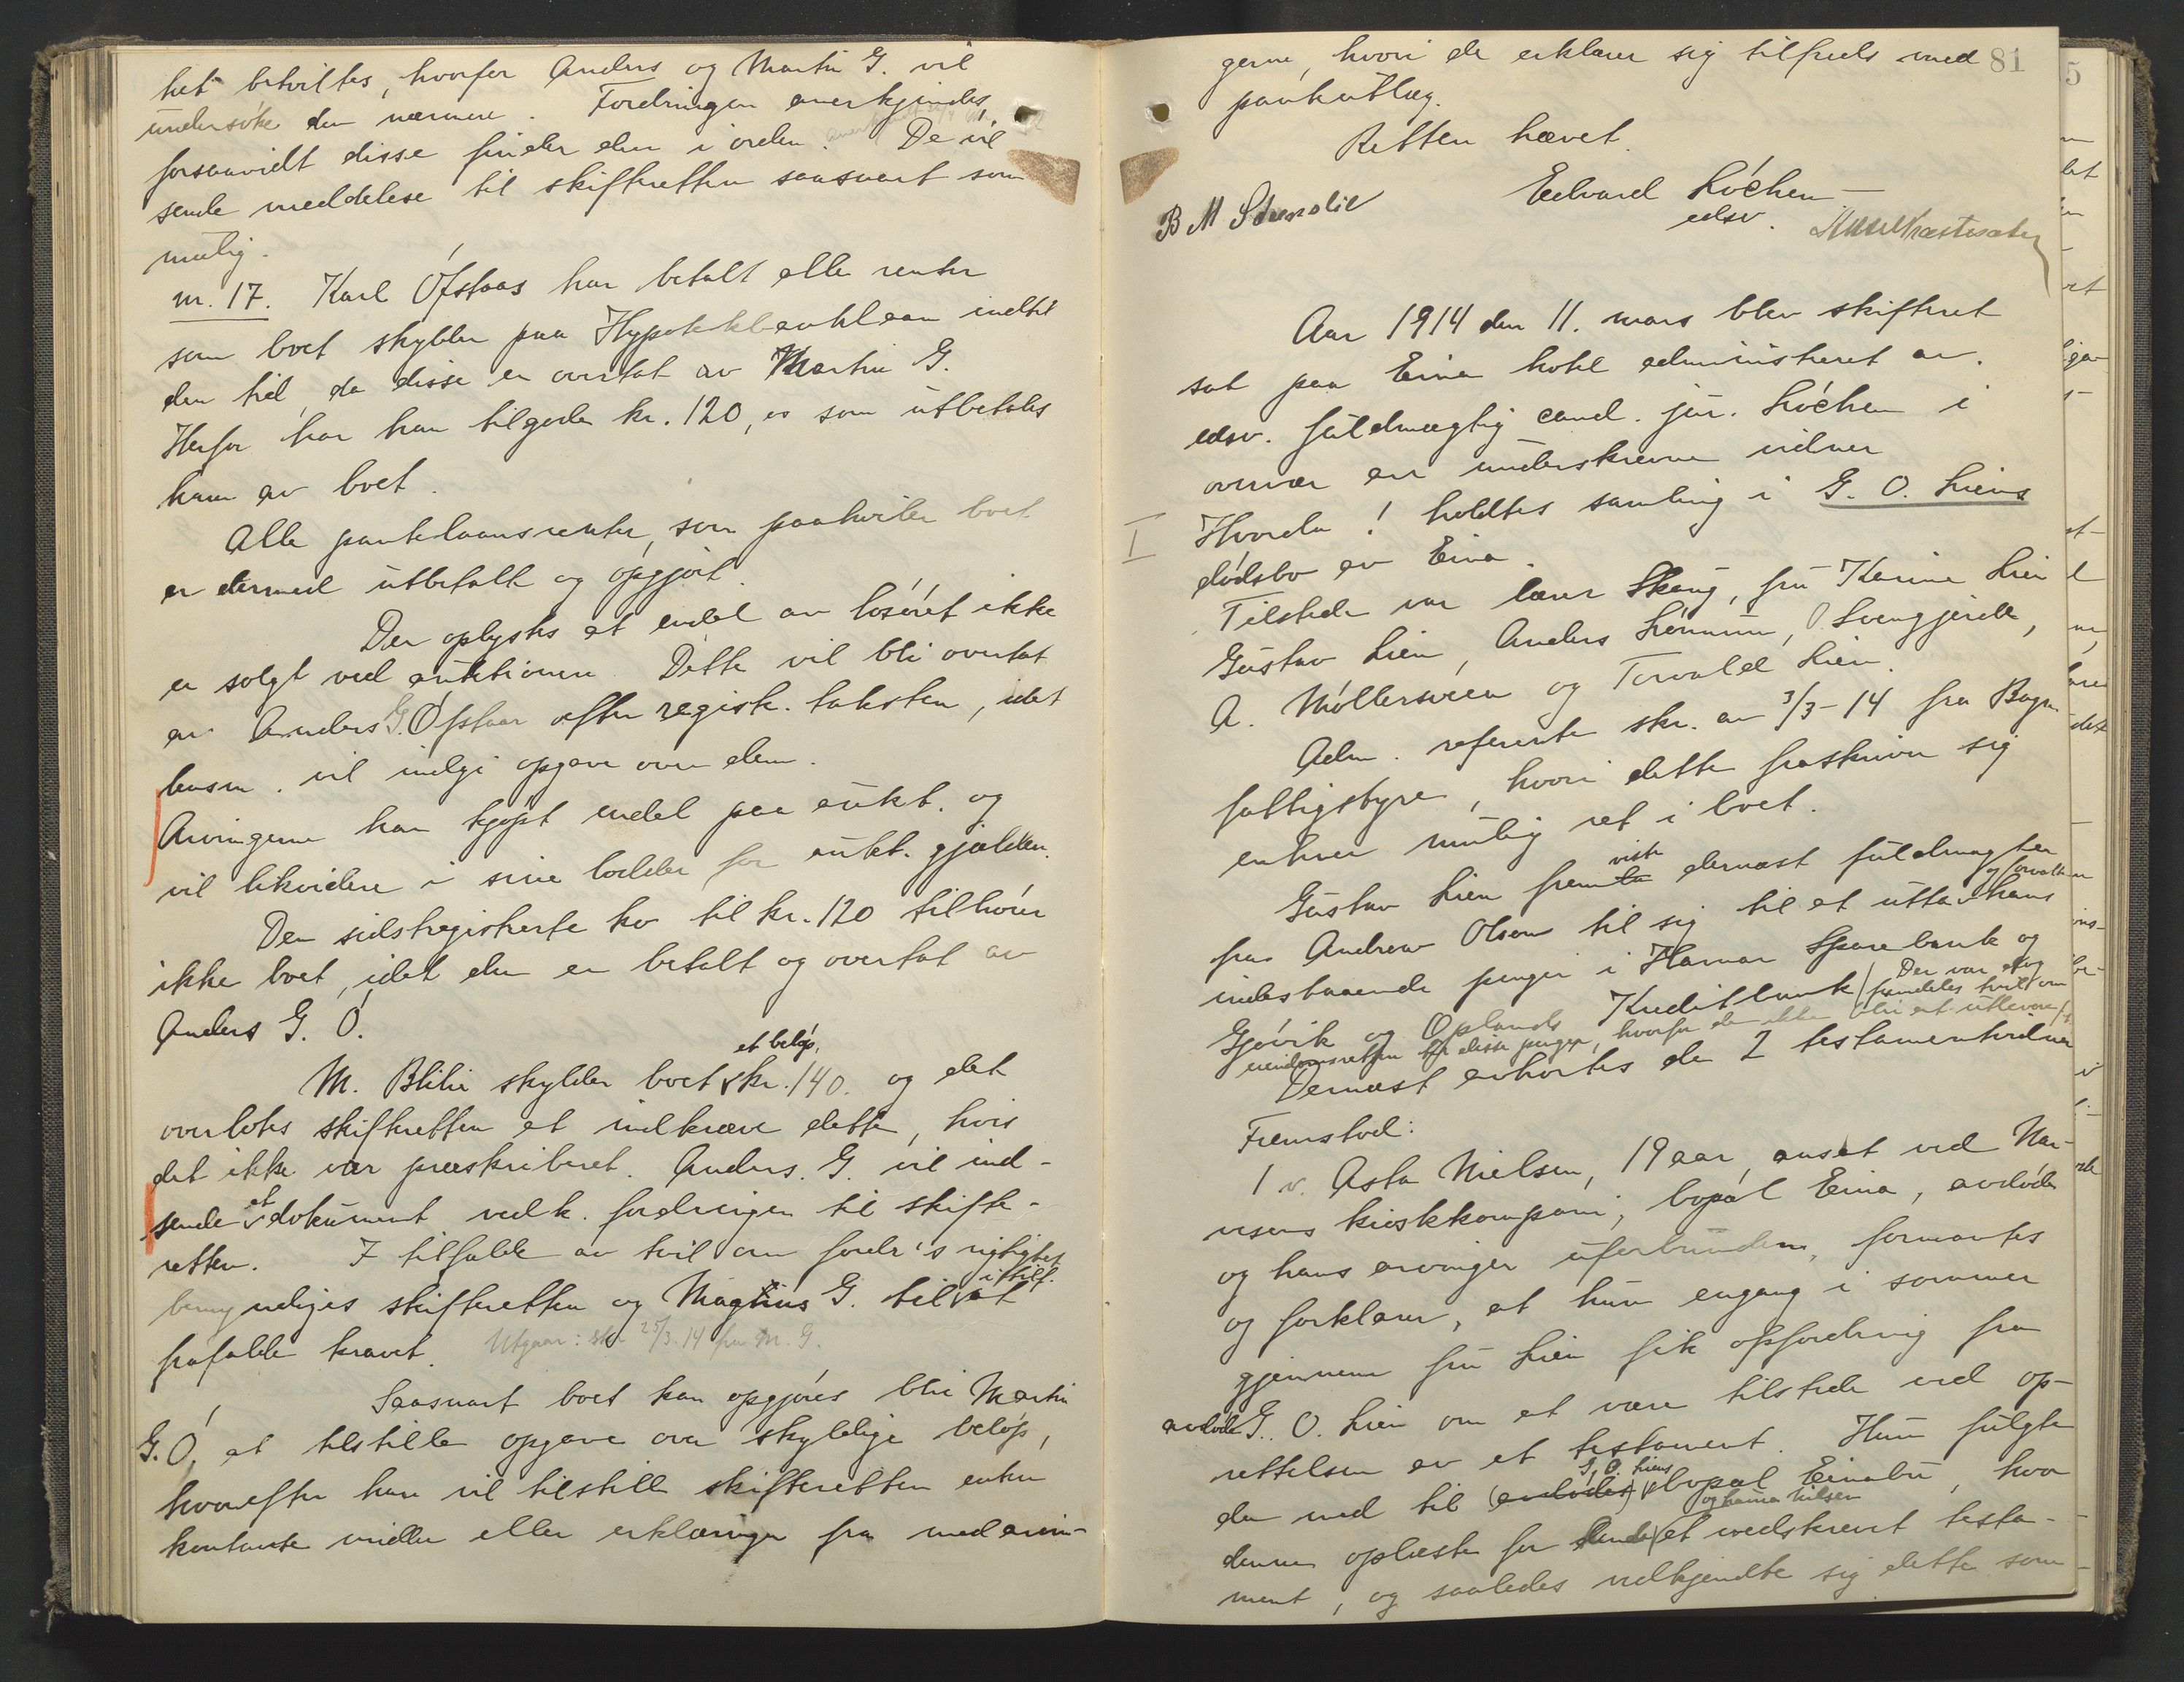 het betviltes, hvorfor Anders og Martin G. vil
undersöke den nærmere. Fordringen anerkjendes,
forsaavidt disse finder den i orden. De vil
sende meddelese til skifteretten saasnart som
mulig.
nr. 17. Karl Ófstaas har betalt alle renter
som boet skylder paa Hypotekbanklaan indtil
den tid, da disse er overtat av Martin G.
Herfor har han tilgode kr. 120, som utbetales
ham av boet.
Alle pantelaansrenter, som paahviler boet
er dermed utbetalt og opgjört.
Der oplystes at endel av lösöret ikke
er solgt ved auktionen. Dette vil bli overtat
av Anders G. Ófstaas efter registr. taksten, idet
lensm. vil indgi opgave over dem.
Arvingerne har kjöpt endel paa aukt. og
vil likvidere i sine lodder for aukt. gjælden.
Den sidstregistrerte ko til kr. 120 tilhörer
ikke boet, idet den er betalt og overtat av
Anders G. Ó.
et belöp,
M. Blilie skylder boet kr. 140. og det
overlotes skifteretten at indkræve dette, hvis
det ikke var præskriberet. Anders. G. vil ind-
sende et dokument vedk. fordringen til skifte-
retten. I tilfælde av tvil om fordr's rigtighet
bemyndiges skifteretten og Magnus G. til i tilf. at
frafalde kravet. Utgaar: skr 25/3.14 fra M. G.
Saasnart boet kan opgjöres blir Martin
G. Ó. at tilstille opgave over skyldige belöp,
hvorefter han vil tilstille skifteretten enten
kontante midler eller erklæringer fra medarvin-
81
gerne, hvori de erklærer sig tilfreds med
panteutlæg.
Retten hævet.
Edvard Lóchen
edsv.
B M Stenslie
Aar 1914 den 11. mars blev skifteret
sat paa Eina hotel administreret av
edsv. fuldmægtig cand. jur. Lóchen i
overvær av underskrevne vidner
I
Hvorda! holdtes samling i G. O. Liens
dódsbo av Eina.
Tilstede var lærer Skaug, fru Karine Lien
Gustav Lien, Anders Lönnum, O. Svengjerde,
A. Möllersveen og Torvald Lien.
Adm. refererte skr. av 3/3-14 fra Bagn
fattigstyre, hvori dette fraskriver sig
enhver mulig ret i boet.
viste
Gustav Lien frem dernæst fuldmagter
fra Andrew Olsen til sig til at utta hans og forvalte
indestaaende penger i Hamar Sparebank og
Gjövik og Oplands Kreditbank (Der var dog fremdeles tvil om
eiendomsretten til disse penger, hvorfor de ikke blir at utlevere)
Dernæst avhörtes de 2 testamentvidner
Fremstod:
1 v. Asta Nielsen, 19 aar, ansat ved Nar-
vesens kioskkompani, bopæl Eina, avdöde
og hans arvinger uforbunden, formantes
og forklarer, at hun engang i sommer
gjennem fru Lien fik opfordring fra
avdöde G. O. Lien om at være tilstede ved op-
rettelsen av et testament. Hun fulgte
G. O. Liens
da med til (avdödes) bopæl Einabu, hvor
og hanna Nilsen
denne oplæste for hende et nedskrevet testa-
ment, og saaledes vedkjendte sig dette som